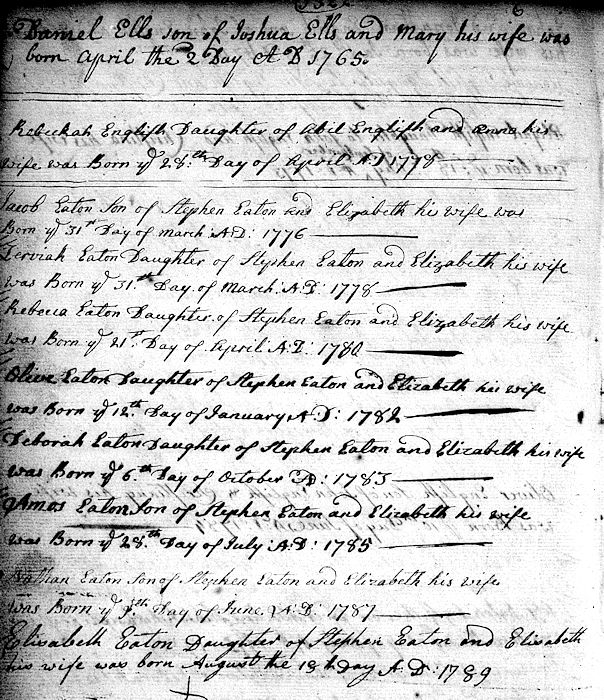 Daniel Ells son of Joshua Ells and Mary his wife was
born April the 2 Day A D 1765.
Rebeckah English Daughter of Abil English and Anna his
wife was Born ye 28.th Day of April A D 1778
Jacob Eaton Son of Stephen Eaton and Elizabeth his wife was
Born ye 31st Day of march A:D: 1776
Zerviah Eaton Daughter of Stephen Eaton and Elizabeth his wife
was Born ye 31.st Day of March: A:D: 1778
Rebeca Eaton Daughter of Stephen Eaton and Elizabeth his wife
was Born ye 21st Day of April: A:D: 1780
Olive Eaton Daughter of Stephen Eaton and Elizabeth his wife
was Born ye 12th Day of January A:D: 1782
Deborah Eaton Daughter of Stephen Eaton and Elizabeth his wife
was Born ye 6.th Day of October AD: 1783
Amos Eaton Son of Stephen Eaton and Elizabeth his wife
was Born ye 28.th Day of July: A:D: 1785
Nathan Eaton Son of Stephen Eaton and Elizabeth his wife
was Born ye Day of June, A:D: 1787
Elisabeth Eaton Daughter of Stephen Eaton and Elisabeth
his wife was born August the 18th day A:D: 1789